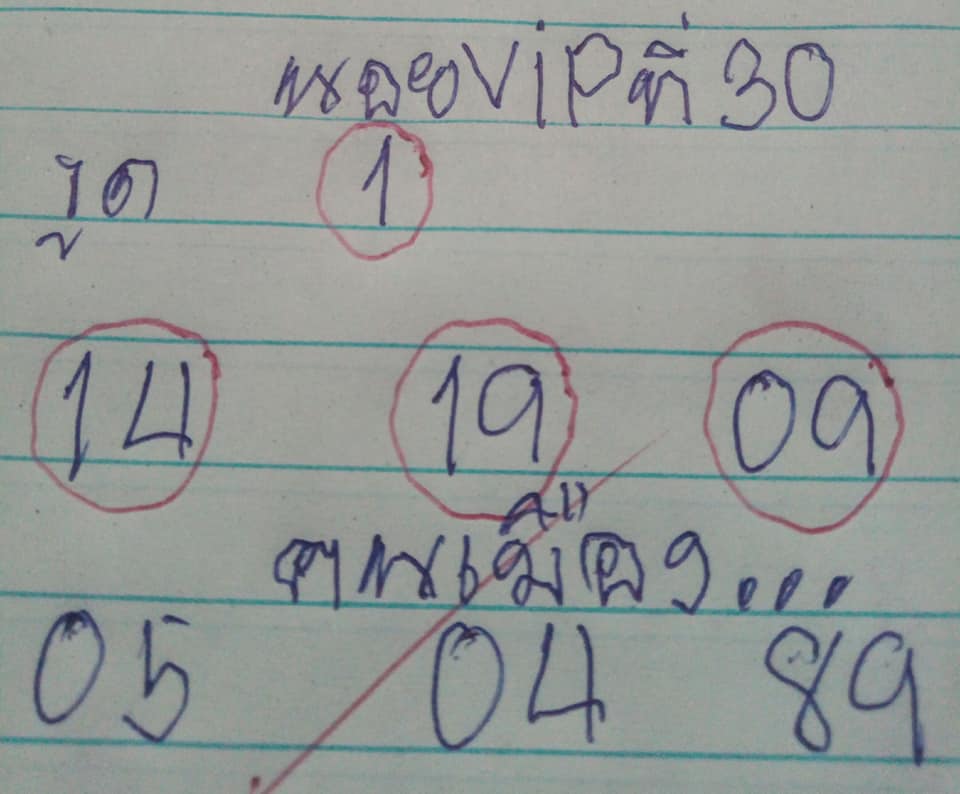 หลอยVIPที่30
รูด 1
14 19 09
คนเมือง...
05 04 89